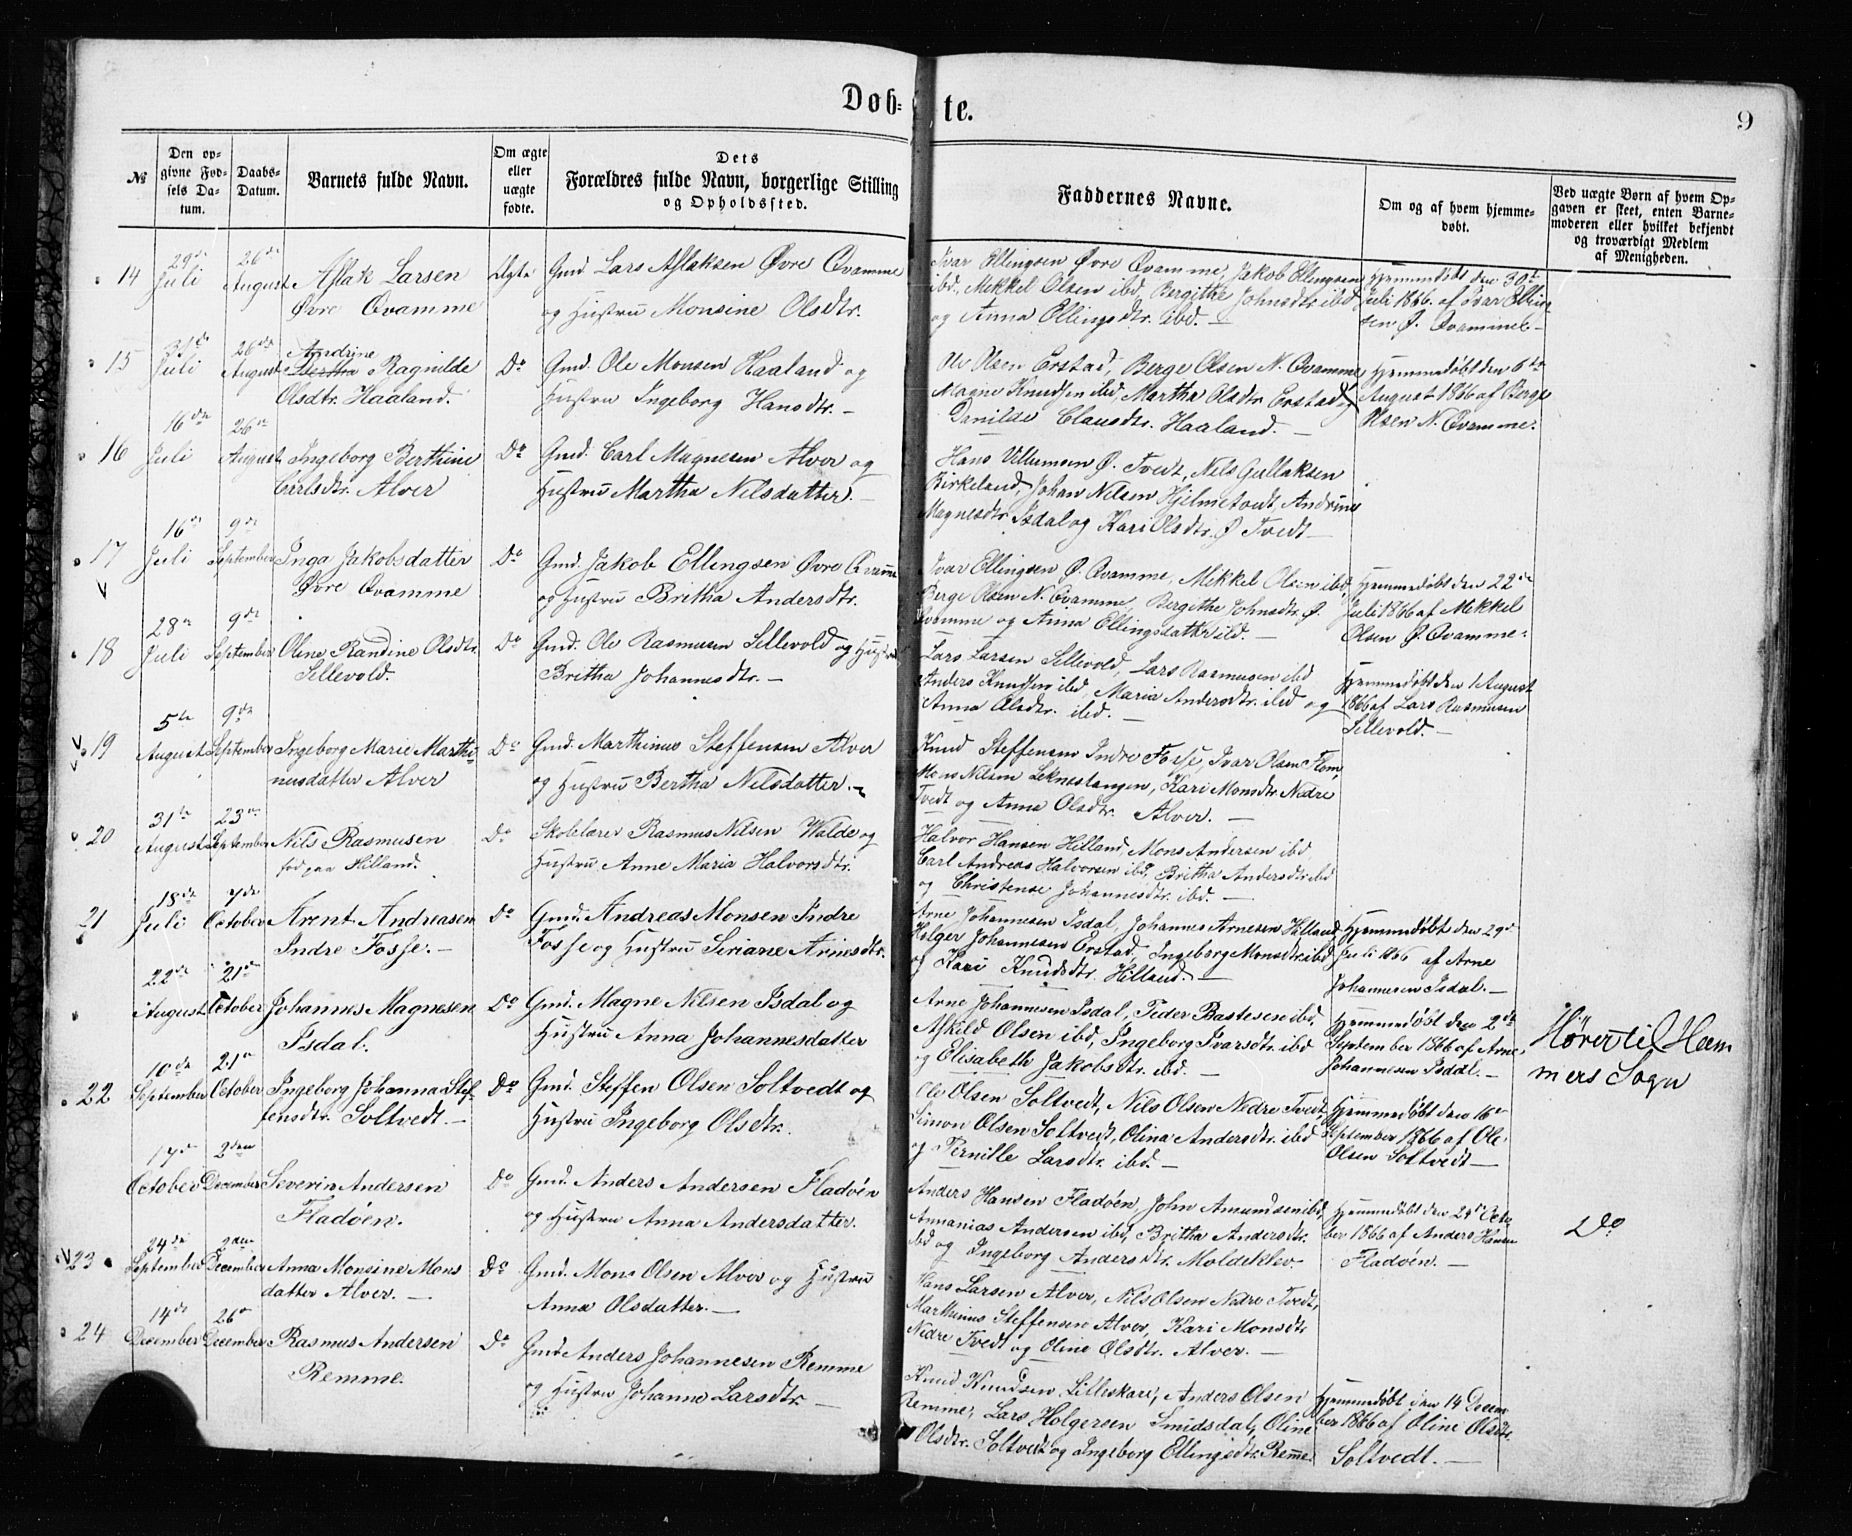 Døb= te.
9
№
Den op-
givne Fød-
sels Da-
tum.
Daabs-
Datum.
Barnets fulde Navn.
Om ægte
eller
uægte
fødte.
Dets
Forældres fulde Navn, borgerlige Stilling
og Opholdssted.
Faddernes Navne.
Om og af hvem hjemme-
døbt.
Ved uægte Børn af hvem Op-
gaven er skeet, enten Barne-
moderen eller hvilket bekjendt
og troværdigt Medlem
af Menigheden.
14
29de
Juli
26de
August
Aslak Larsen
Øvre Qvamme
Ægte
Gmd. Lars Aslaksen Øvre Qvamme
og Hustru Monsine Olsdtr.
Ivar Ellingsen Øvre Qvamme, Jakob Ellingsen
ibd. Mikkel Olsen ibd, Bergithe Johnsdtr. ibd
og Anna Ellingsdtr. ibd. —
Hjemmedøbt den 30te
Juli 1866. af Ivar Elling-
sen Ø. Qvamme. —
15
31de
Juli
26de
August
Andrine
Bertha Ragnilde
Olsdtr. Haaland.
Do
Gmd. Ole Monsen Haaland og
Hustru Ingeborg Hansdtr. —
Ole Olsen Erstad, Berge Olsen N. Qvamme
Magne Knudsen ibd, Martha Olsdtr Erstad og
Danilde Clausdtr. Haaland. —
Hjemmedøbt den 6te
August 1866 af Berge
Olsen N. Qvamme.
16
16de
Juli
26de
August
Ingeborg Berthine
Carlsdtr. Alver
Do
Gmd. Carl Magnesen Alver og
Hustru Martha Nilsdatter. —
Hans Villumsen Ø. Tvedt, Nils Gullaksen
Birkeland, Johan Nilsen Hjelmetvedt, Andrine
Magnesdtr. Isdal og Kari Olsdtr. Ø Tvedt —
17
16de
Juli
9de
September
Inga Jakobsdatter
Øvre Qvamme
Do
Gmd. Jakob Ellingsen Øvre Qvamme
og Hustru Britha Andersdtr.
Ivar Ellingsen Ø. Qvamme, Mikkel Olsen ibd,
Berge Olsen N. Qvamme, Bergithe Johnsdtr. Ø.
Qvamme og Anna Ellingsdatter ibd. —
Hjemmedøbt den 22de
Juli 1866 af Mikkel
Olsen Ø. Qvamme.
18
28de
Juli
9de
September
Oline Randine Olsdtr.
Sellevold.
Do
Gmd. Ole Rasmusen Sellevold og Hustru
Britha Johannesdtr. —
Lars Larsen Sellevold, Lars Rasmusen ibd
Anders Knudsen ibd, Maria Andersdtr. ibd og
Anna Olsdtr. ibd. —
Hjemmedøbt den 1 August
1866 af Lars Rasmusen
Sellevold. —
19
5te
August
9de
September
Ingeborg Marie Marthi-
nusdatter Alver
Do
Gmd. Marthinus Steffensen Alver
og Hustru Bertha Nilsdatter. —
Knud Steffensen Indre Fosse, Ivar Olsen Flom,
Mons Nilsen Leknestangen, Kari Monsdtr. Nedre
Tvedt og Anna Olsdtr. Alver. —
20
31te
August
23de
September
Nils Rasmusen
fød paa Hilland.
Do
Skolelærer Rasmus Nilsen Walde og
Hustru Anne Maria Halvorsdtr.
Halvor Hansen Hilland, Mons Andersen ibd,
Carl Andreas Halvorsen ibd, Britha Andersdtr ibd
og Christense Johannesdtr. ibd. —
21
18de
Juli
7de
October
Arent Andreasen
Indre Fosse. —
Do
Gmd. Andreas Monsen Indre
Fosse og Hustru Siriane Arnesdtr.
Arne Johannesen Isdal, Johannes Arnesen Hilland
Holger Johannesen Erstad, Ingeborg Monsdtr ibd
og Kari Knudsdtr. Hilland. —
Hjemmedøbt den 29de
Juli 1866 af Arne
Johannesen Isdal. —
22de
August
21de
October
Johannes Magnesen
Isdal.
Do
Gmd. Magne Nilsen Isdal og
Hustru Anna Johannesdatter
Arne Johannesen Isdal, Peder Bastesen ibd,
Askild Olsen ibd, Ingeborg Ivarsdtr. ibd
og Elisabeth Jakobsdtr. ibd. —
Hjemmedøbt den 2de
September 1866 af Arne
Johannesen Isdal. —
Hører til Ham
mers Sogn
22
10de
September
21de
October
Ingeborg Johanna Stef
fensdtr. Soltvedt. —
Do
Gmd. Steffen Olsen Soltvedt og
Hustru Ingeborg Olsdtr.
Ole Olsen Soltvedt, Nils Olsen Nedre Tvedt,
Simon Olsen Soltvedt, Olina Andersdtr. ibd
og Pernille Larsdtr. ibd. —
Hjemmedøbt den 16de
September 1866 af Ole
Olsen Soltvedt —
17de
October
2den
December
Severin Andersen
Fladøen.
Do
Gmd. Anders Andersen Fladøen
og Hustru Anna Andersdatter.
Anders Hansen Fladøen, John Amundsen ibd,
Annanias Andersen ibd, Britha Andersdtr.
ibd og Ingeborg Andersdtr. Moldeklev.
Hjemmedøbt den 24de Octo-
ber 1866 af Anders Hansen
Fladøen. —
Do
23
24de
September
2den
December
Anna Monsine Mons
datter Alver. —
Do
Gmd. Mons Olsen Alver og Hustru
Anna Olsdatter. —
Hans Larsen Alver, Nils Olsen Nedre Tvedt,
Marthinus Steffensen Alver, Kari Monsdtr
Nedre Tvedt og Oline Olsdtr. Alver. —
24
14de
December
26de
December
Rasmus Andersen
Remme.
Do
Gmd Anders Johannesen Remme
og Hustru Johanna Larsdtr. —
Knud Knudsen Lilleskare, Anders Olsen
Remme, Lars Holgersen Smidsdal, Oline
Olsdtr. Soltvedt og Ingeborg Ellingsdtr. Remme.
Hjemmedøbt den 14 Decem
ber 1866 af Oline Olsdtr.
Soltvedt. —